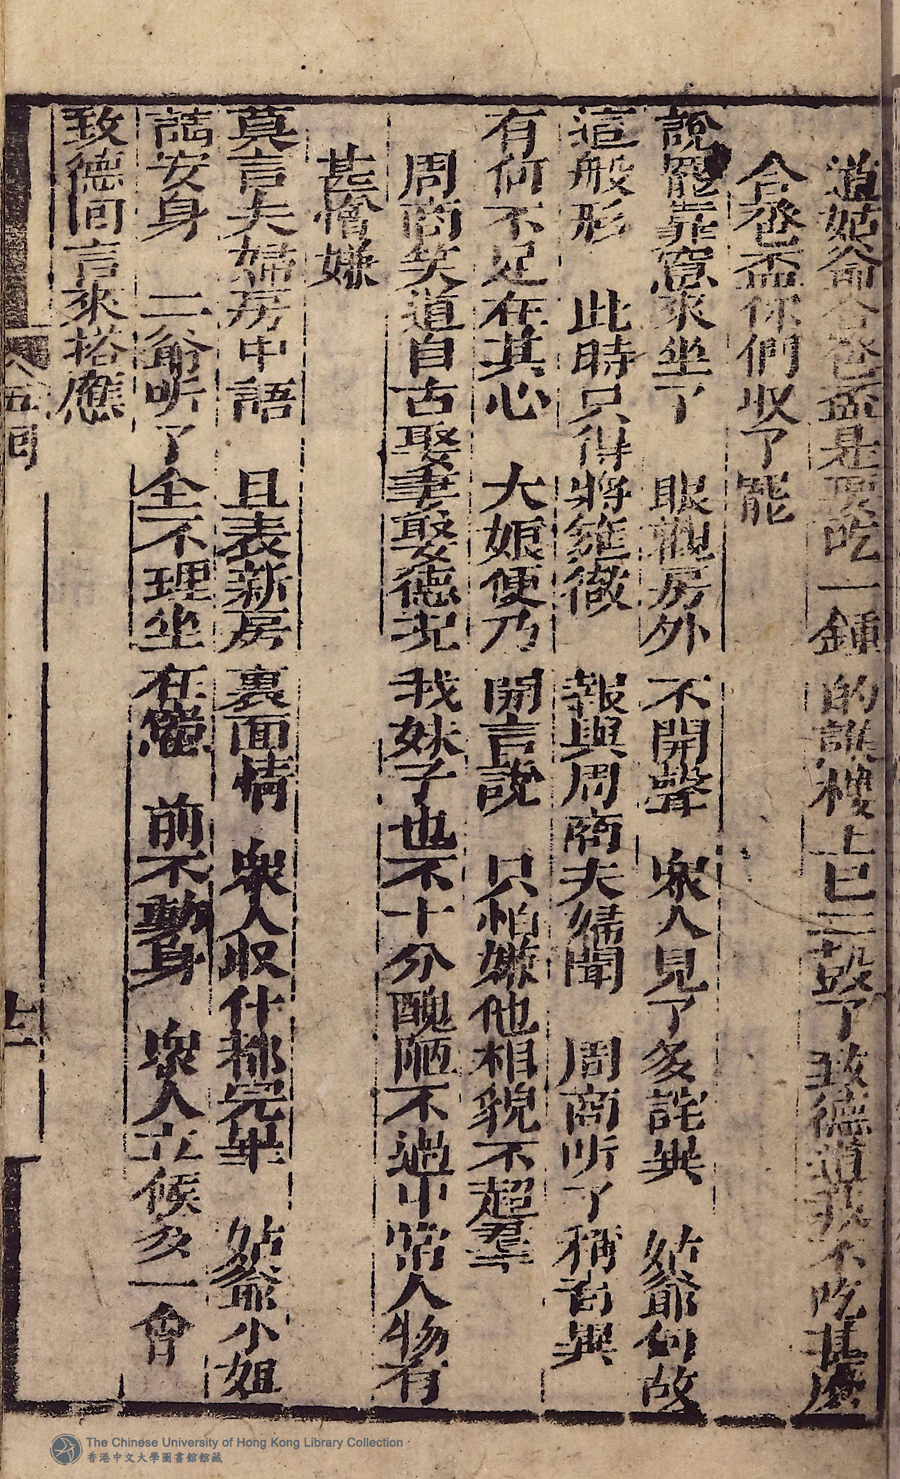 道姑爺合卺盃是要吃一鍾的譙樓上已三鼓了致德道我不吃甚麼
合卺盃你們収了罷
說罷靠窓來坐了　眼觀房外不開聲　衆人見了多詫異　姑爺何故
這般形　此時只得將筵徹　報與周商夫婦聞　周商听了稱奇異
有何不足在其心　大娘便乃開言說　只怕嫌他相貌不超羣
周商笑道自古娶妻娶德况我妹子也不十分醜陋不過中常人物有
甚憎嫌
莫言夫婦房中語　且表新房裏面情　衆人収什都完畢　姑爺小姐
請安身　二爺听了全不理　坐在窻前不動身　衆人立候多一會
致德回言來搭應
五回
十二
The Chinese University of Hong Kong Library Collection
香港中文大學圖書館館藏